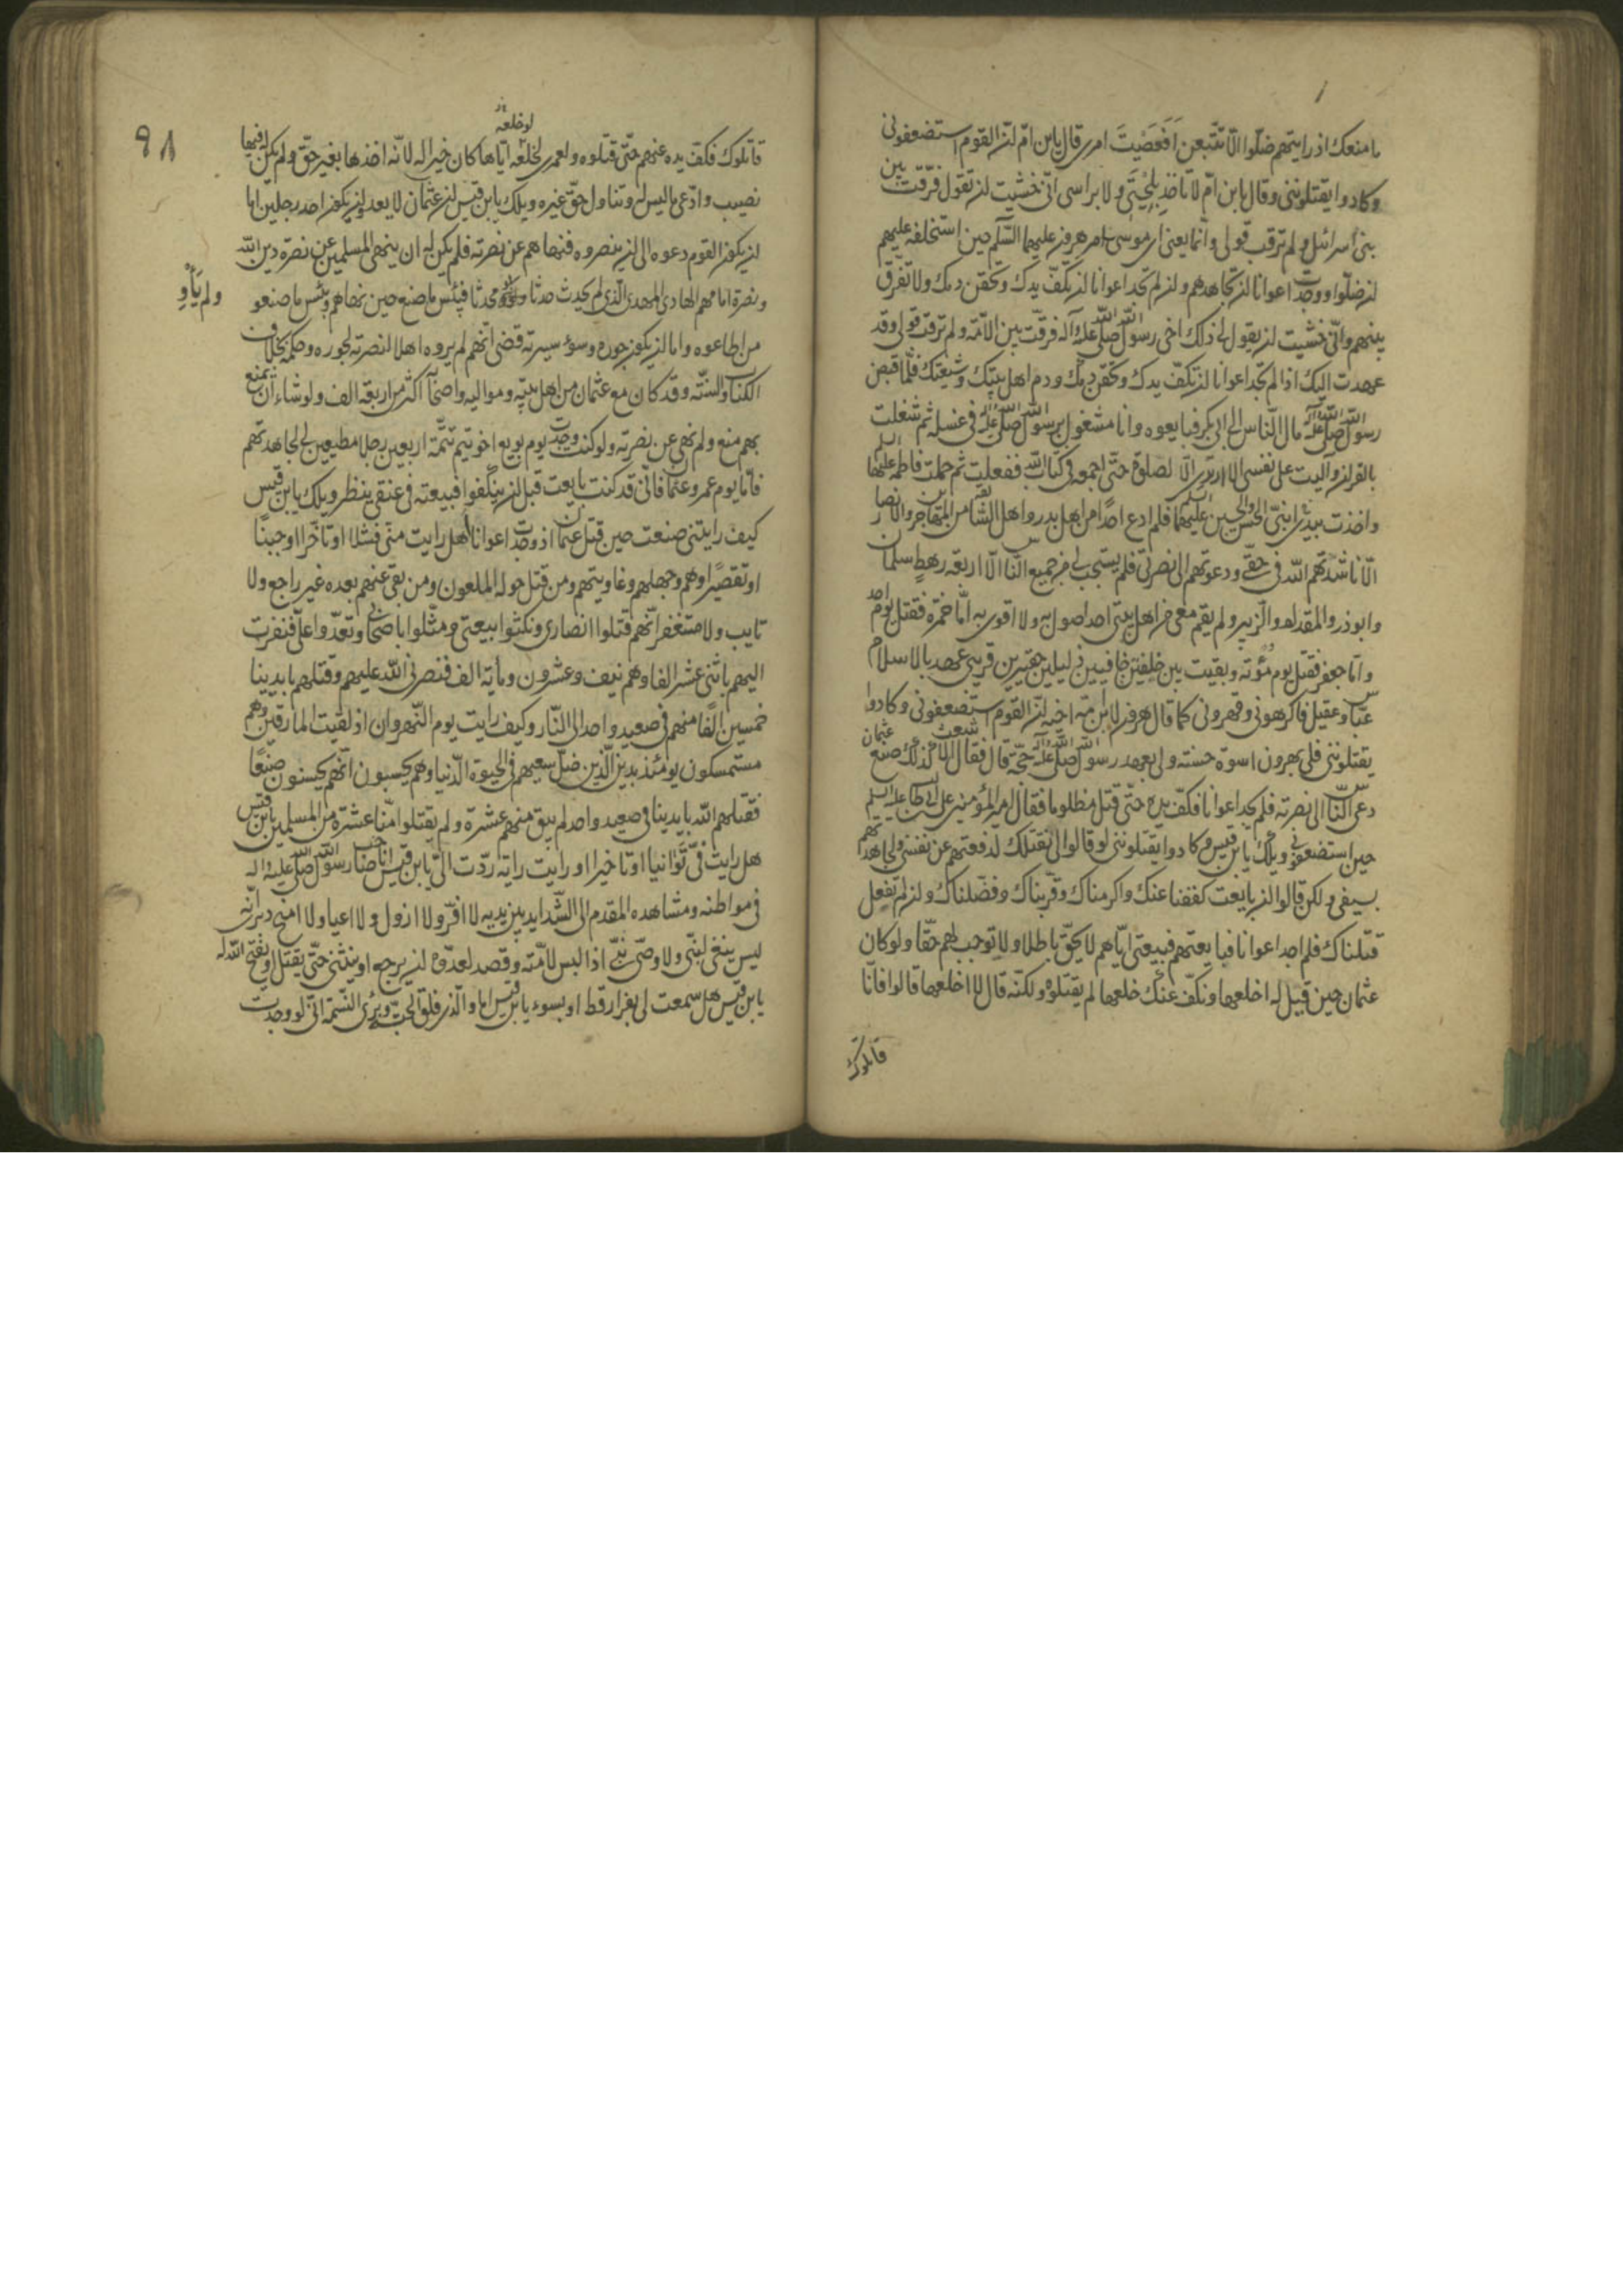 ما منعك اذ رايتهم ضلّوا الّا تتّبعن اَفَعَصَيْتَ امرى قال يابن امّ انّ القوم استضعفونى
وكادوا يقتلوننى وقال يابن امّ لا تاخذ بِلِحْيَتى ولا براسى انّى خشيت ان تقول فرّقت بين
بنى اسرائيل ولم ترقب قولى وانّما يعنى ان موسى امر هرون عليهما السّلم حين استخلفه عليهم
ان ضلّوا ووجد اعوانا ان يجاهدهم وان لم يجد اعوانا ان يكفّ يدك وتحقن دمك ولا تفرق
بينهم وانّى خشيت ان يقول لى ذلك اخى رسول الله صلى الله عليه وآله فرقت بين الامّة ولم ترقب قولى وقد
عهدت اليك اذا لم تجد اعوانا ان تكفّ يدك وتحقن دمك ودم اهل بيتك وشيعتك فلمّا قبض
رسول الله صلى الله عليه وآله مال النّاس الى ابى بكر فبايعوه وانا مشغول برسول الله صلى الله عليه وآله فى غسله ثم شغلت
بالقران وآليت على نفسى الّا ارتدى الّا لصلوة حتّى اجمعه فى كتاب الله ففعلت ثم حملت فاطمه عليها السلم
واخذت بيد ابنىّ الحسن والحسين عليهما السلم فلم ادع احدًا من اهل بدر واهل السّابقة من المهاجرين والانصار
الّا ناشدتهم الله فى حقّى ودعوتهم الى نصرتى فلم يستجب لى من جميع النّاس الّا اربعة رهط سلمان
وابوذر والمقداد والزبير ولم يقم معى من اهل بيتى احد اصول به ولا اقوى به امّا حمزة فقتل يوم احد
وامّا جعفر فقتل يوم مُؤتة وبقيت بين خلفين خافيين ذليلين حقيرين قريبى عهد بالاسلام
عبّاس وعقيل فاكرهونى وقهرونى كما قال هرون لاخيه انّ القوم استضعفونى وكادوا
يقتلوننى فلى بهرون اسوة حسنة ولى بعهد رسول الله صلى الله عليه وآله حجّة قال فقال الاشعث كذلك صنع عثمان
دعى النّاس الى نصرته فلم يجد اعوانا فكفّ يده حتّى قتل مظلوما فقال امير المؤمنين على بن ابى طالب عليه السلم
حين استضعفونى ويلك يابن قيس وكادوا يقتلوننى لو قالوا لى نقتلك لدفعتهم عن نفسى ولجاهدتهم
بسيفى ولكن قالوا ان بايعت كففنا عنك واكرمناك وقرّبناك وفضّلناك وان لم تفعل
قتلناك فلم اجد اعوانا فبايعتهم فبيعتى ايّاهم لا يحقّ باطلا ولا توجب لهم حقّا ولو كان
عثمان حين قيل له اخلعها ونكفّ عنك خلعها لم يقتلوه ولكنّه قال لا اخلعها قالوا فانّا
قاتلوك
٩٨
لو خلعه
قاتلوك فكفّ يده عنهم حتّى قتلوه ولعمرى لخلعه ايّاها كان خيرا له لانّه اخذها بغير حقّ ولم يكن له فيها
نصيب وادّعى ما ليس له وتناول حقّ غيره ويلك يابن قيس ان عثمان لا يعدو ان يكون احد رجلين اما
ان يكون القوم دعوه الى ان ينصروه فنهاهم عن نصرته فلم يكن له ان ينهى المسلمين عن نصرة دين الله
ونصرة امامهم الهادى المهدى الّذى لم يحدث حدثا و محدثا فبئس ما صنع حين نهاهم وبئس ما صنعو
ولم يَأْوِ
من اطاعوه واما ان يكون جوره وسوء سيرته قضى انّهم لم يروه اهلا لنصرته لجوره وحكمه بخلاف
الكتاب والسنّة وقد كان مع عثمان من اهل بيته ومواليه واصحابه اكثر من اربعة الف ولو شاء ان يمتنع
بهم منع ولم نهى عن نصرته ولو كنت وجدت يوم بويع اخو تيم تتمّة اربعين رجلا مطيعين لى لجاهدتهم
فامّا يوم عمر وعثمان فانّى قد كنت بايعت قبل ان ينكفوا فبيعته فى عنقى ينظر ويلك يابن قيس
كيف رايتنى صنعت حين قتل عثمان اذ وجدت اعوانا هل رايت منّى فشلا او تاخّرا او جبنًا
او تقصيرا وهم وجهلهم وغاويتهم ومن قتل حوله الملعون ومن بقى عنهم بعده غير راجع ولا
تايب ولا مستغفر انّهم قتلوا انصارى ونكثوا بيعتى ومثّلوا باصحابى وتعدّوا علىّ فنفرت
اليهم باثنى عشر الفا وهم نيف وعشرون ومأية الف فنصرنى الله عليهم وقتلهم بايدينا
خمسين الفًا منهم فى صعيد واحد الى النّار وكيف رايت يوم النّهروان اذ لقيت المارقين وهم
مستمسكون يومئذ بدين الّذين ضلّ سعيهم فى الحيوة الدّنيا وهم يحسبون انّهم يحسنون صنعًا
فقتلهم الله بايدينا فى صعيد واحد لم يبق منهم عشرة ولم يقتلوا منّا عشرة من المسلمين يابن قيس
هل رايت فىّ تَوانيا او تاخيرا او رايت راية ردّت الىّ يابن قيس انا صاحب رسول الله صلى الله عليه واله
فى مواطنه ومشاهده المقدم الى الشّدايد بين يديه لا افرّ ولا ازول ولا اعيا ولا امنح دبرى انّه
ليس ينبغى لنبّى ولا وصّى نبّى اذا لبس لامّته وقصد لعدوّه ان يرجع او ينثنى حتّى يقتل او يفتح الله له
يابن قيس هل سمعت لى بفرار قط او بسوء يابن قيس اما والّذى فلق الحبّة وبرئ النّسمة انّى لو وجدت